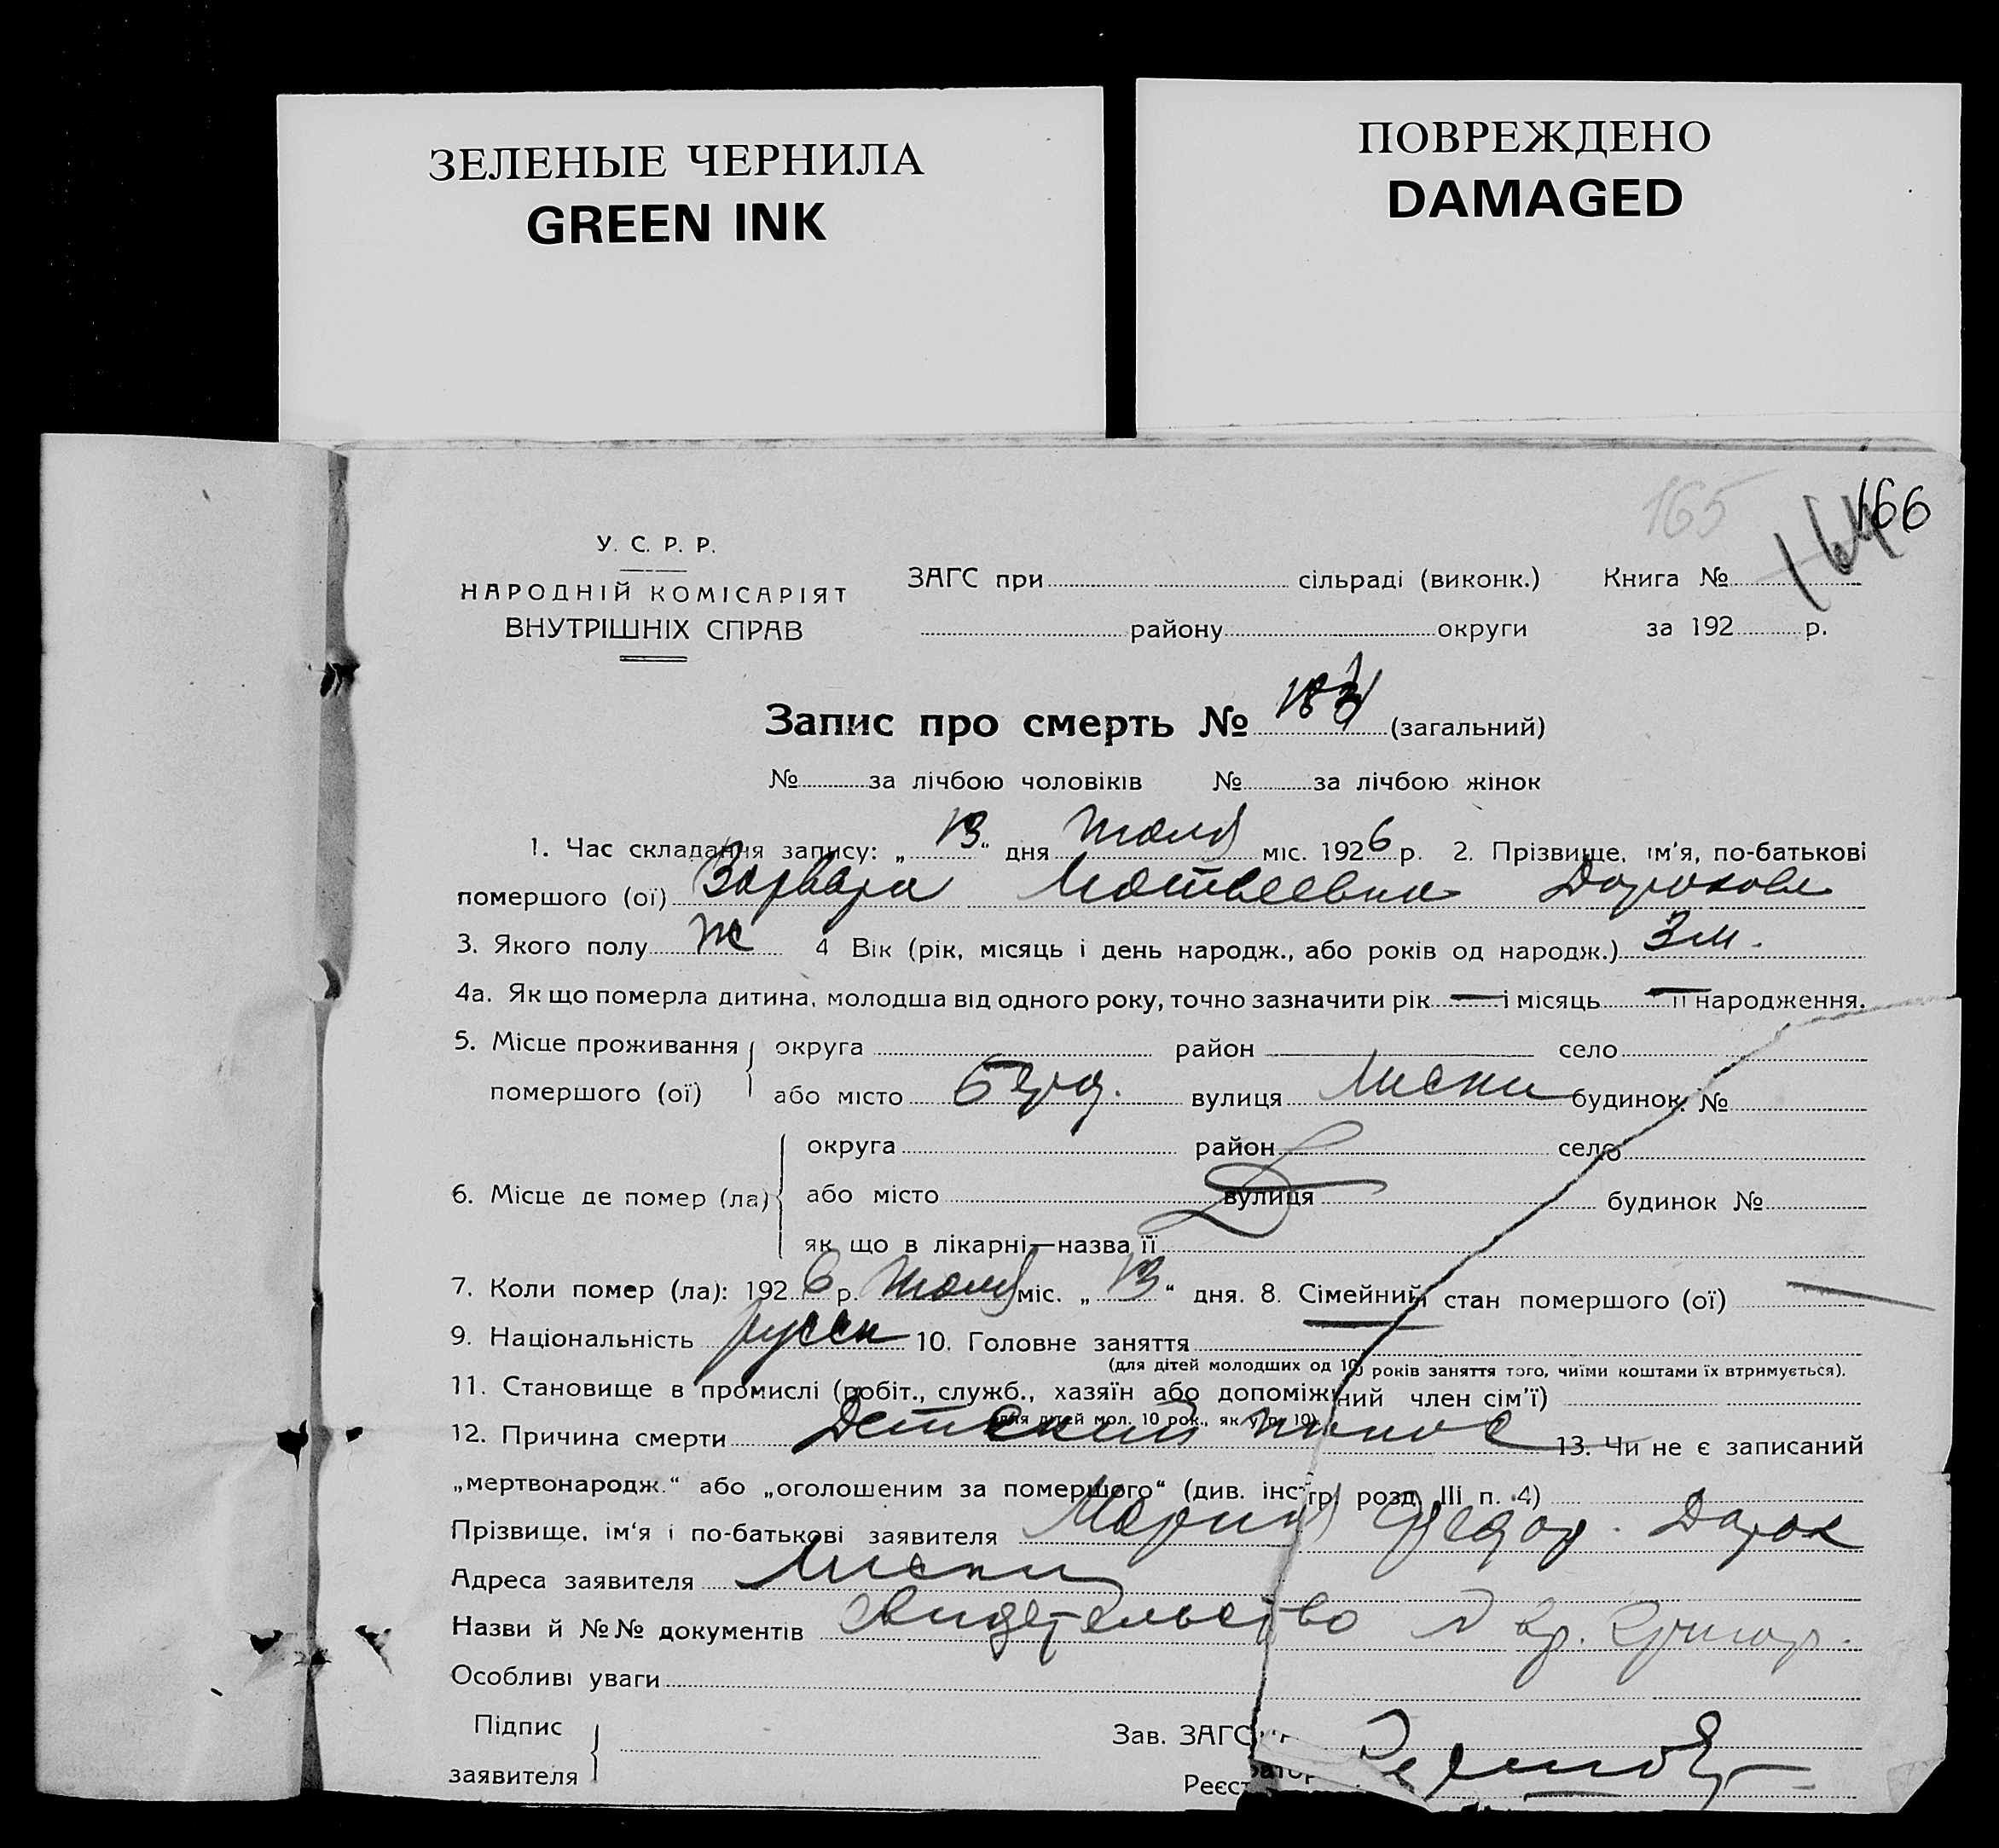 ЗЕЛЕНЫЕ ЧЕРНИЛА
GREEN INK
ПОВРЕЖДЕНО
DAMAGED
165 164 166
У. С. Р. Р.
НАРОДНІЙ КОМІСАРІЯТ
ВНУТРІШНІХ СПРАВ
ЗАГС при сільраді (виконк.) Книга №
району округи за 192 р.
Запис про смерть № (загальний)
№ за лічбою чоловіків № за лічбою жінок
1. Час складання запису: „13“ дня Июля міс. 1926 р. 2. Прізвище, ім'я, по-батькові
помершого (ої) Варвара Матвеевна
3. Якого полу ж 4 Вік (рік, місяць і день народж., або років од народж.) 3 м.
4а. Як що померла дитина, молодша від одного року, точно зазначити рік — і місяць — її народження.
5. Місце проживання округа район село
помершого (ої) або місто вулиця Лиски будинок №
округа район село
6. Місце де помер (ла) або місто вулиця будинок №
як що в лікарні—назва її
7. Коли помер (ла): 1926 р. Июля міс. „13“ дня. 8. Сімейний стан помершого (ої) —
9. Національність русск 10. Головне заняття
(для дітей молодших од 10 років заняття того, чиїми коштами їх втримується).
11. Становище в промислі (робіт., служб., хазяїн або допоміжний член сім'ї)
(для дітей мол. 10 рок., як у п. 10)
12. Причина смерти Детский понос 13. Чи не є записаний
„мертвонародж.“ або „оголошеним за померщого“ (див. інстр. розд. III п. 4)
Прізвище, ім'я і по-батькові заявителя Мария Федор.
Адреса заявителя Лиски
Назви й №№ документів Свидетельство вр.
Особливі уваги
Підпис
заявителя
Зав. ЗАГС
Реєстратор